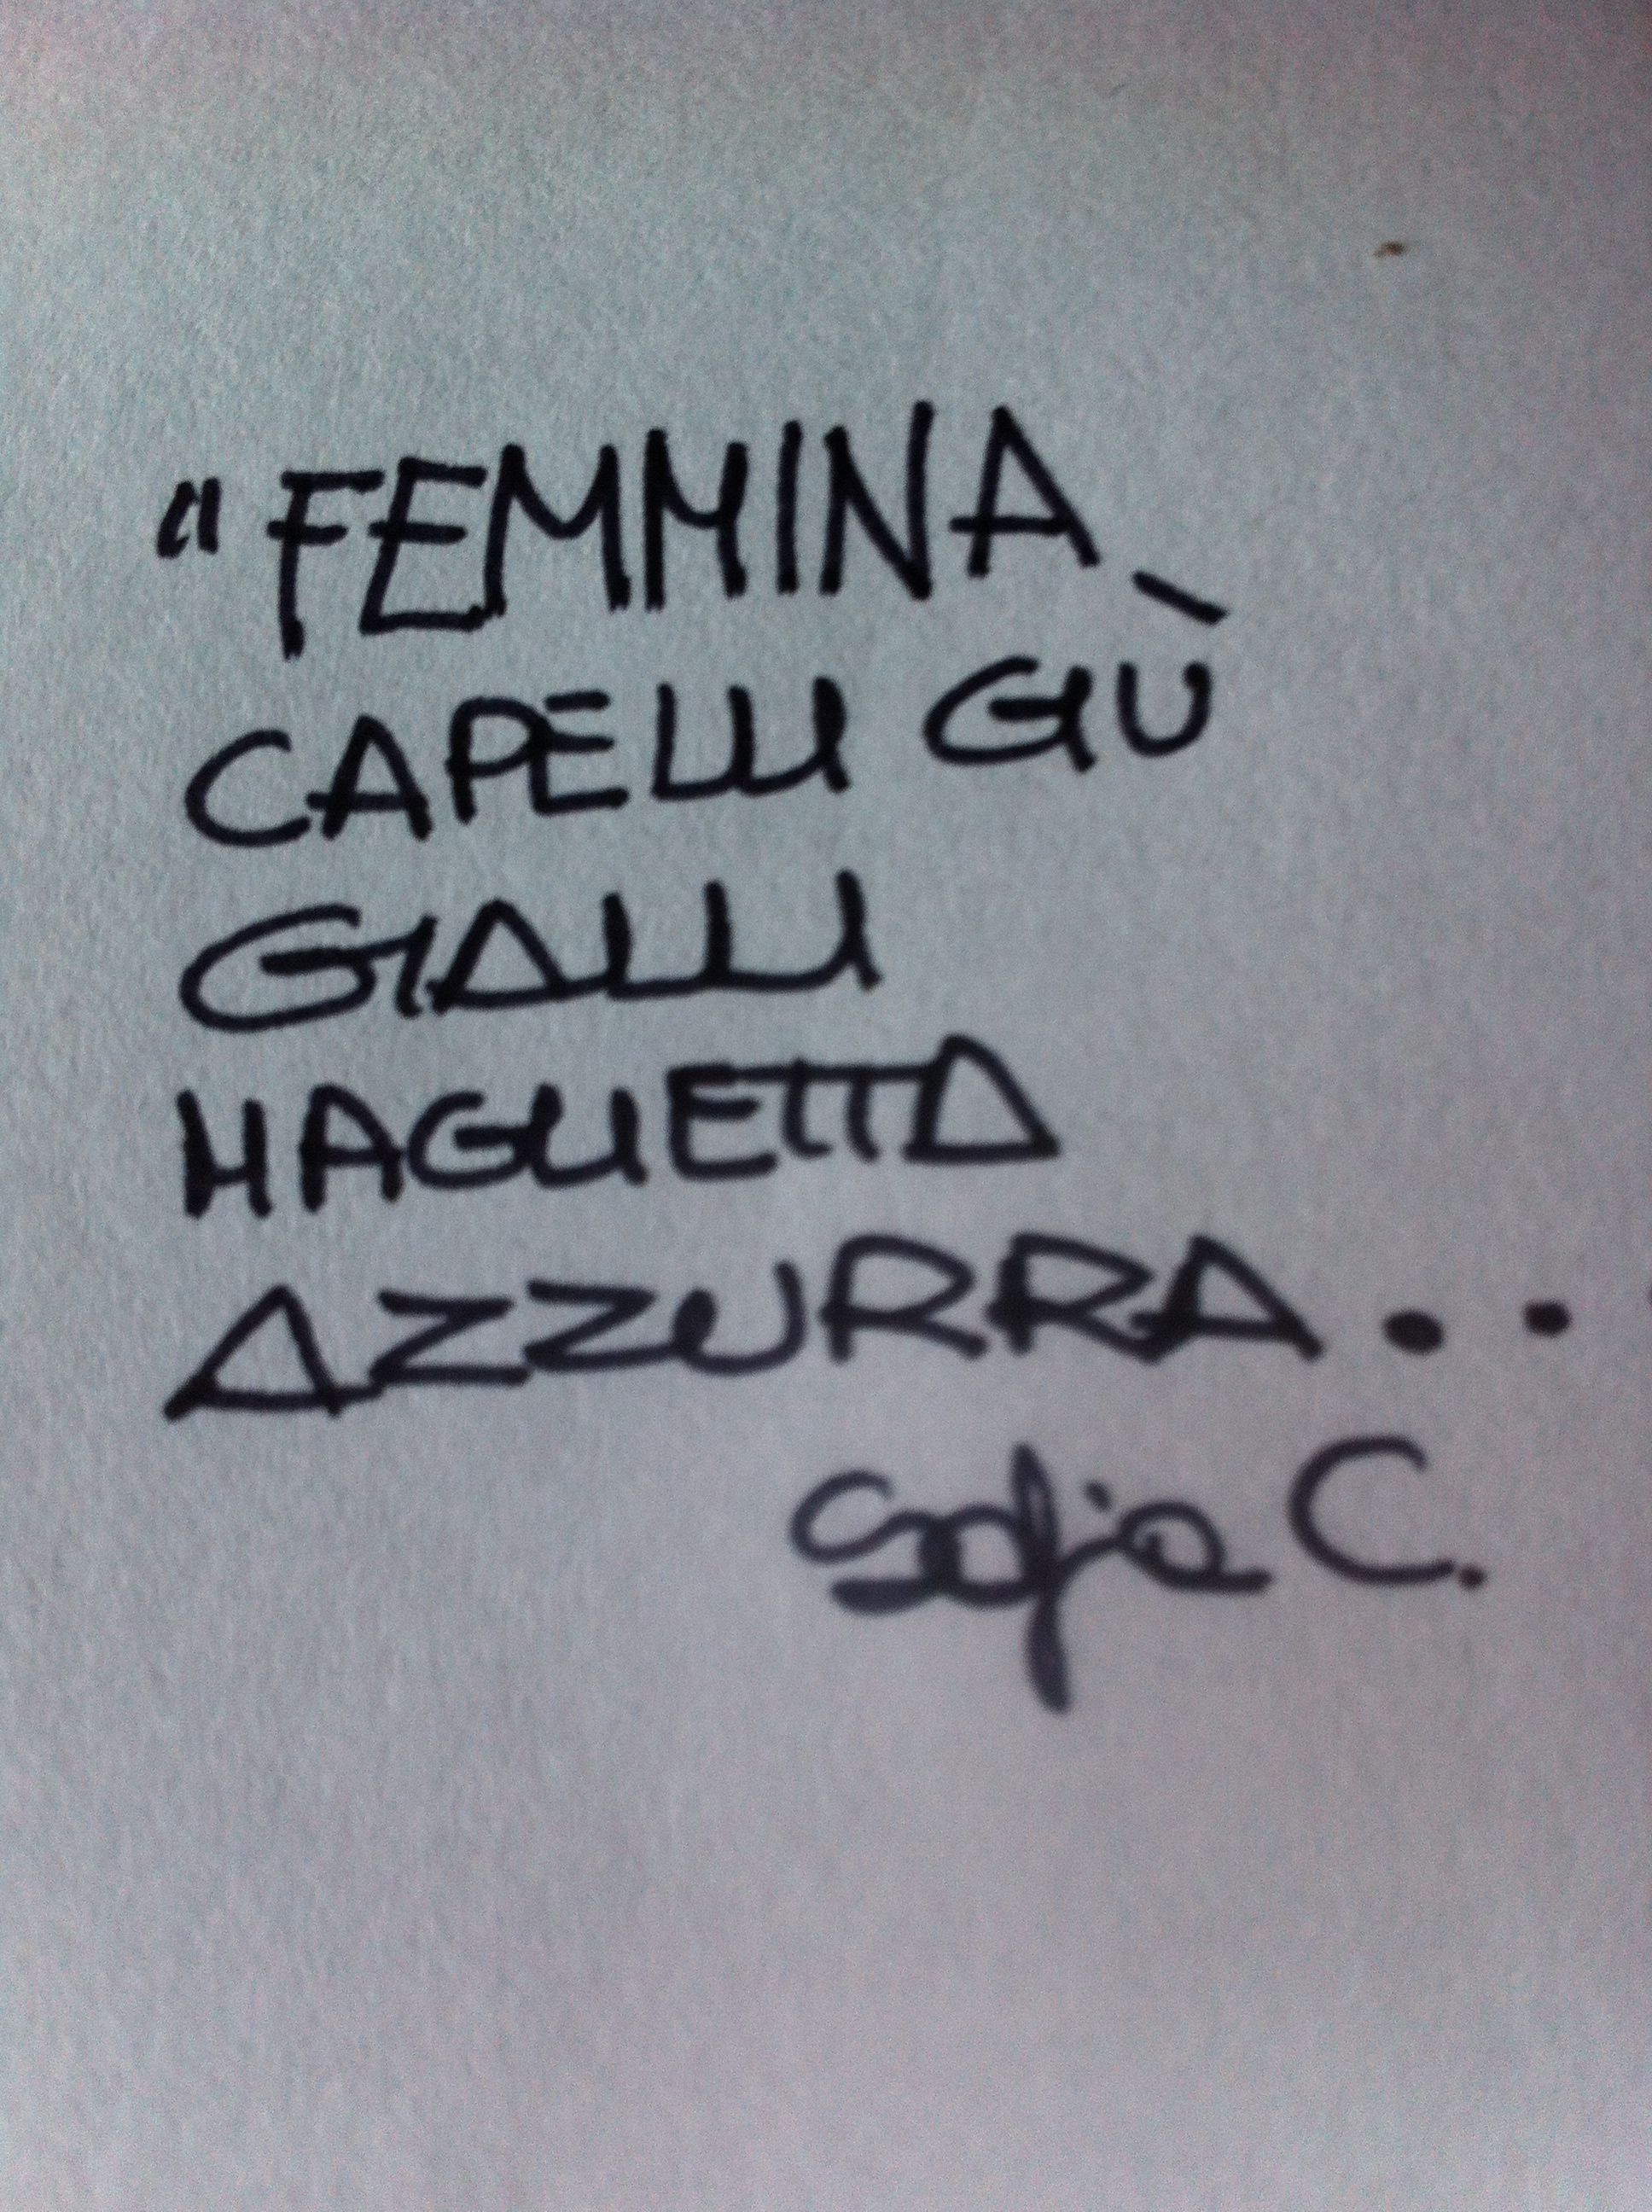 "FEMMINA
CAPELLI GIÙ
GIALLI
MAGLIETTA
AZZURRA..
Sofia C.